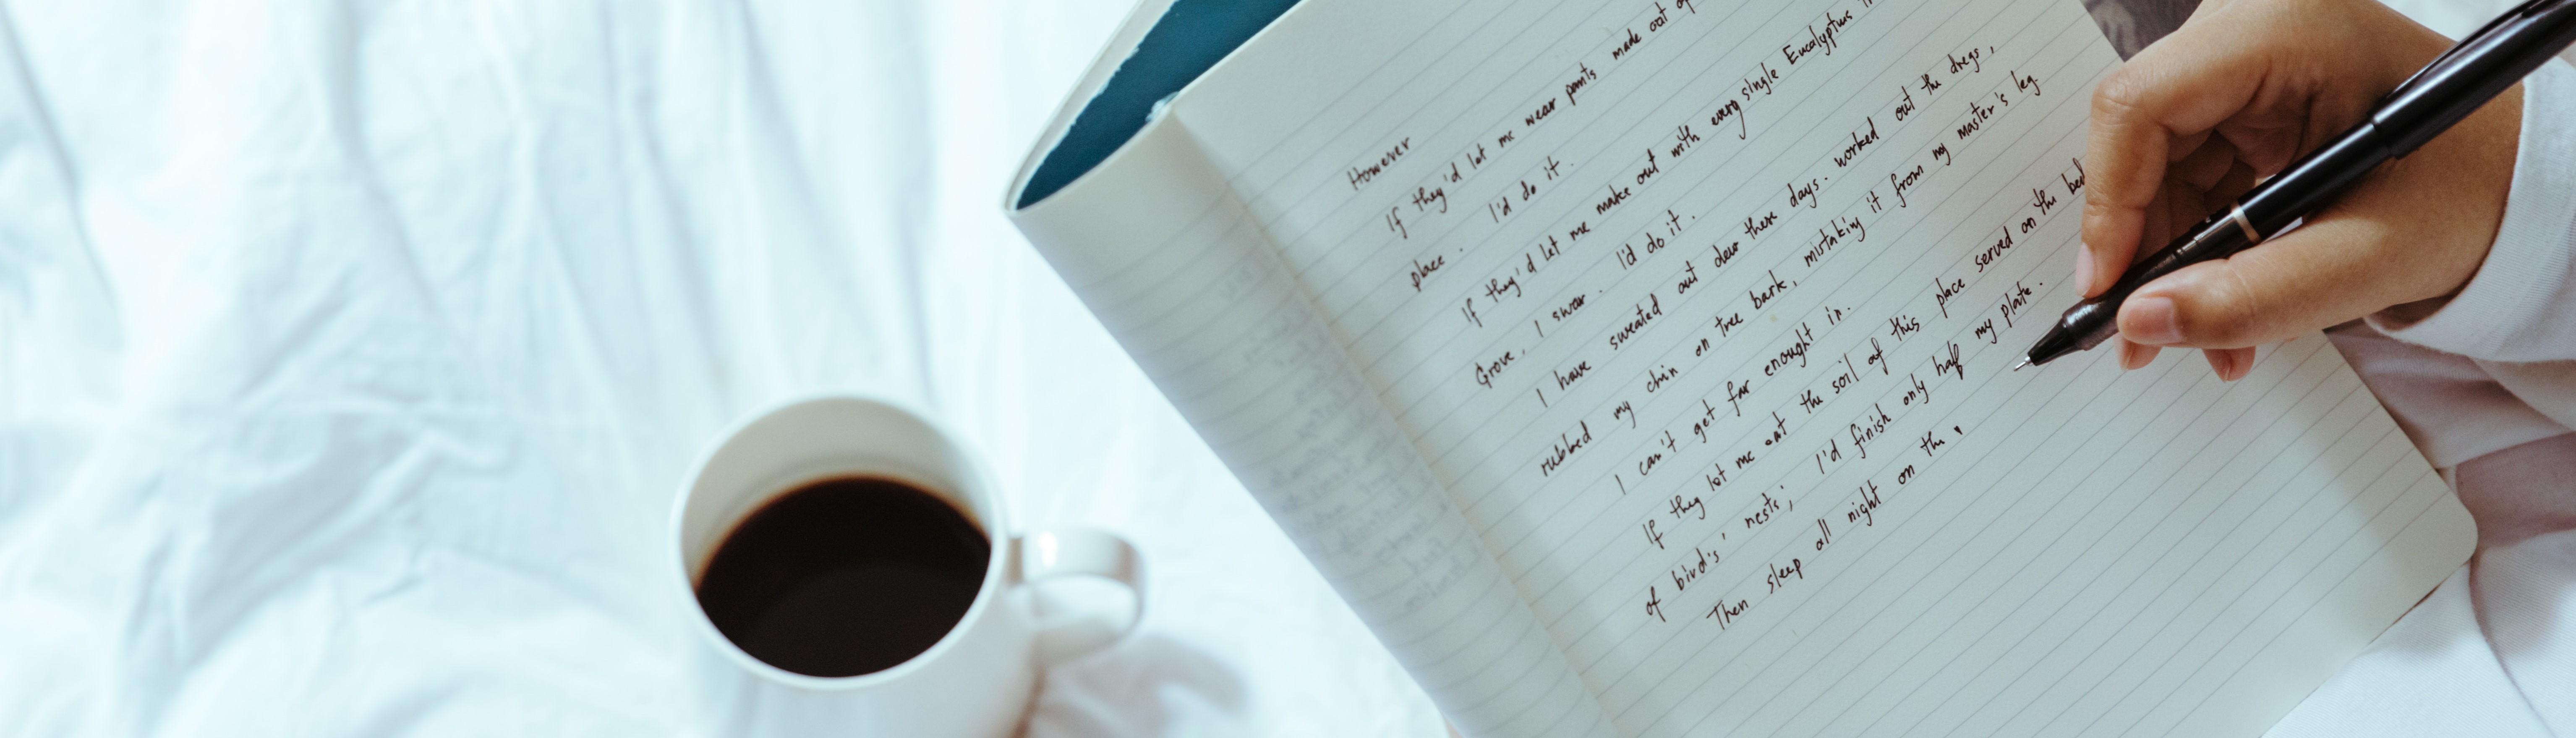 However
If they'd let me wear pants made out of
place. I'd do it.
If they'd let me make out with every single Eucalyptus in
Grove, I swear. I'd do it.
I have sweated out dew these days. worked out the dregs,
rubbed my chin on tree bark, mistaking it from my master's leg
I can't get far enought in.
If they let me eat the soil of this place served on the bed
of bird's' nests; I'd finish only half my plate.
Then sleep all night on the